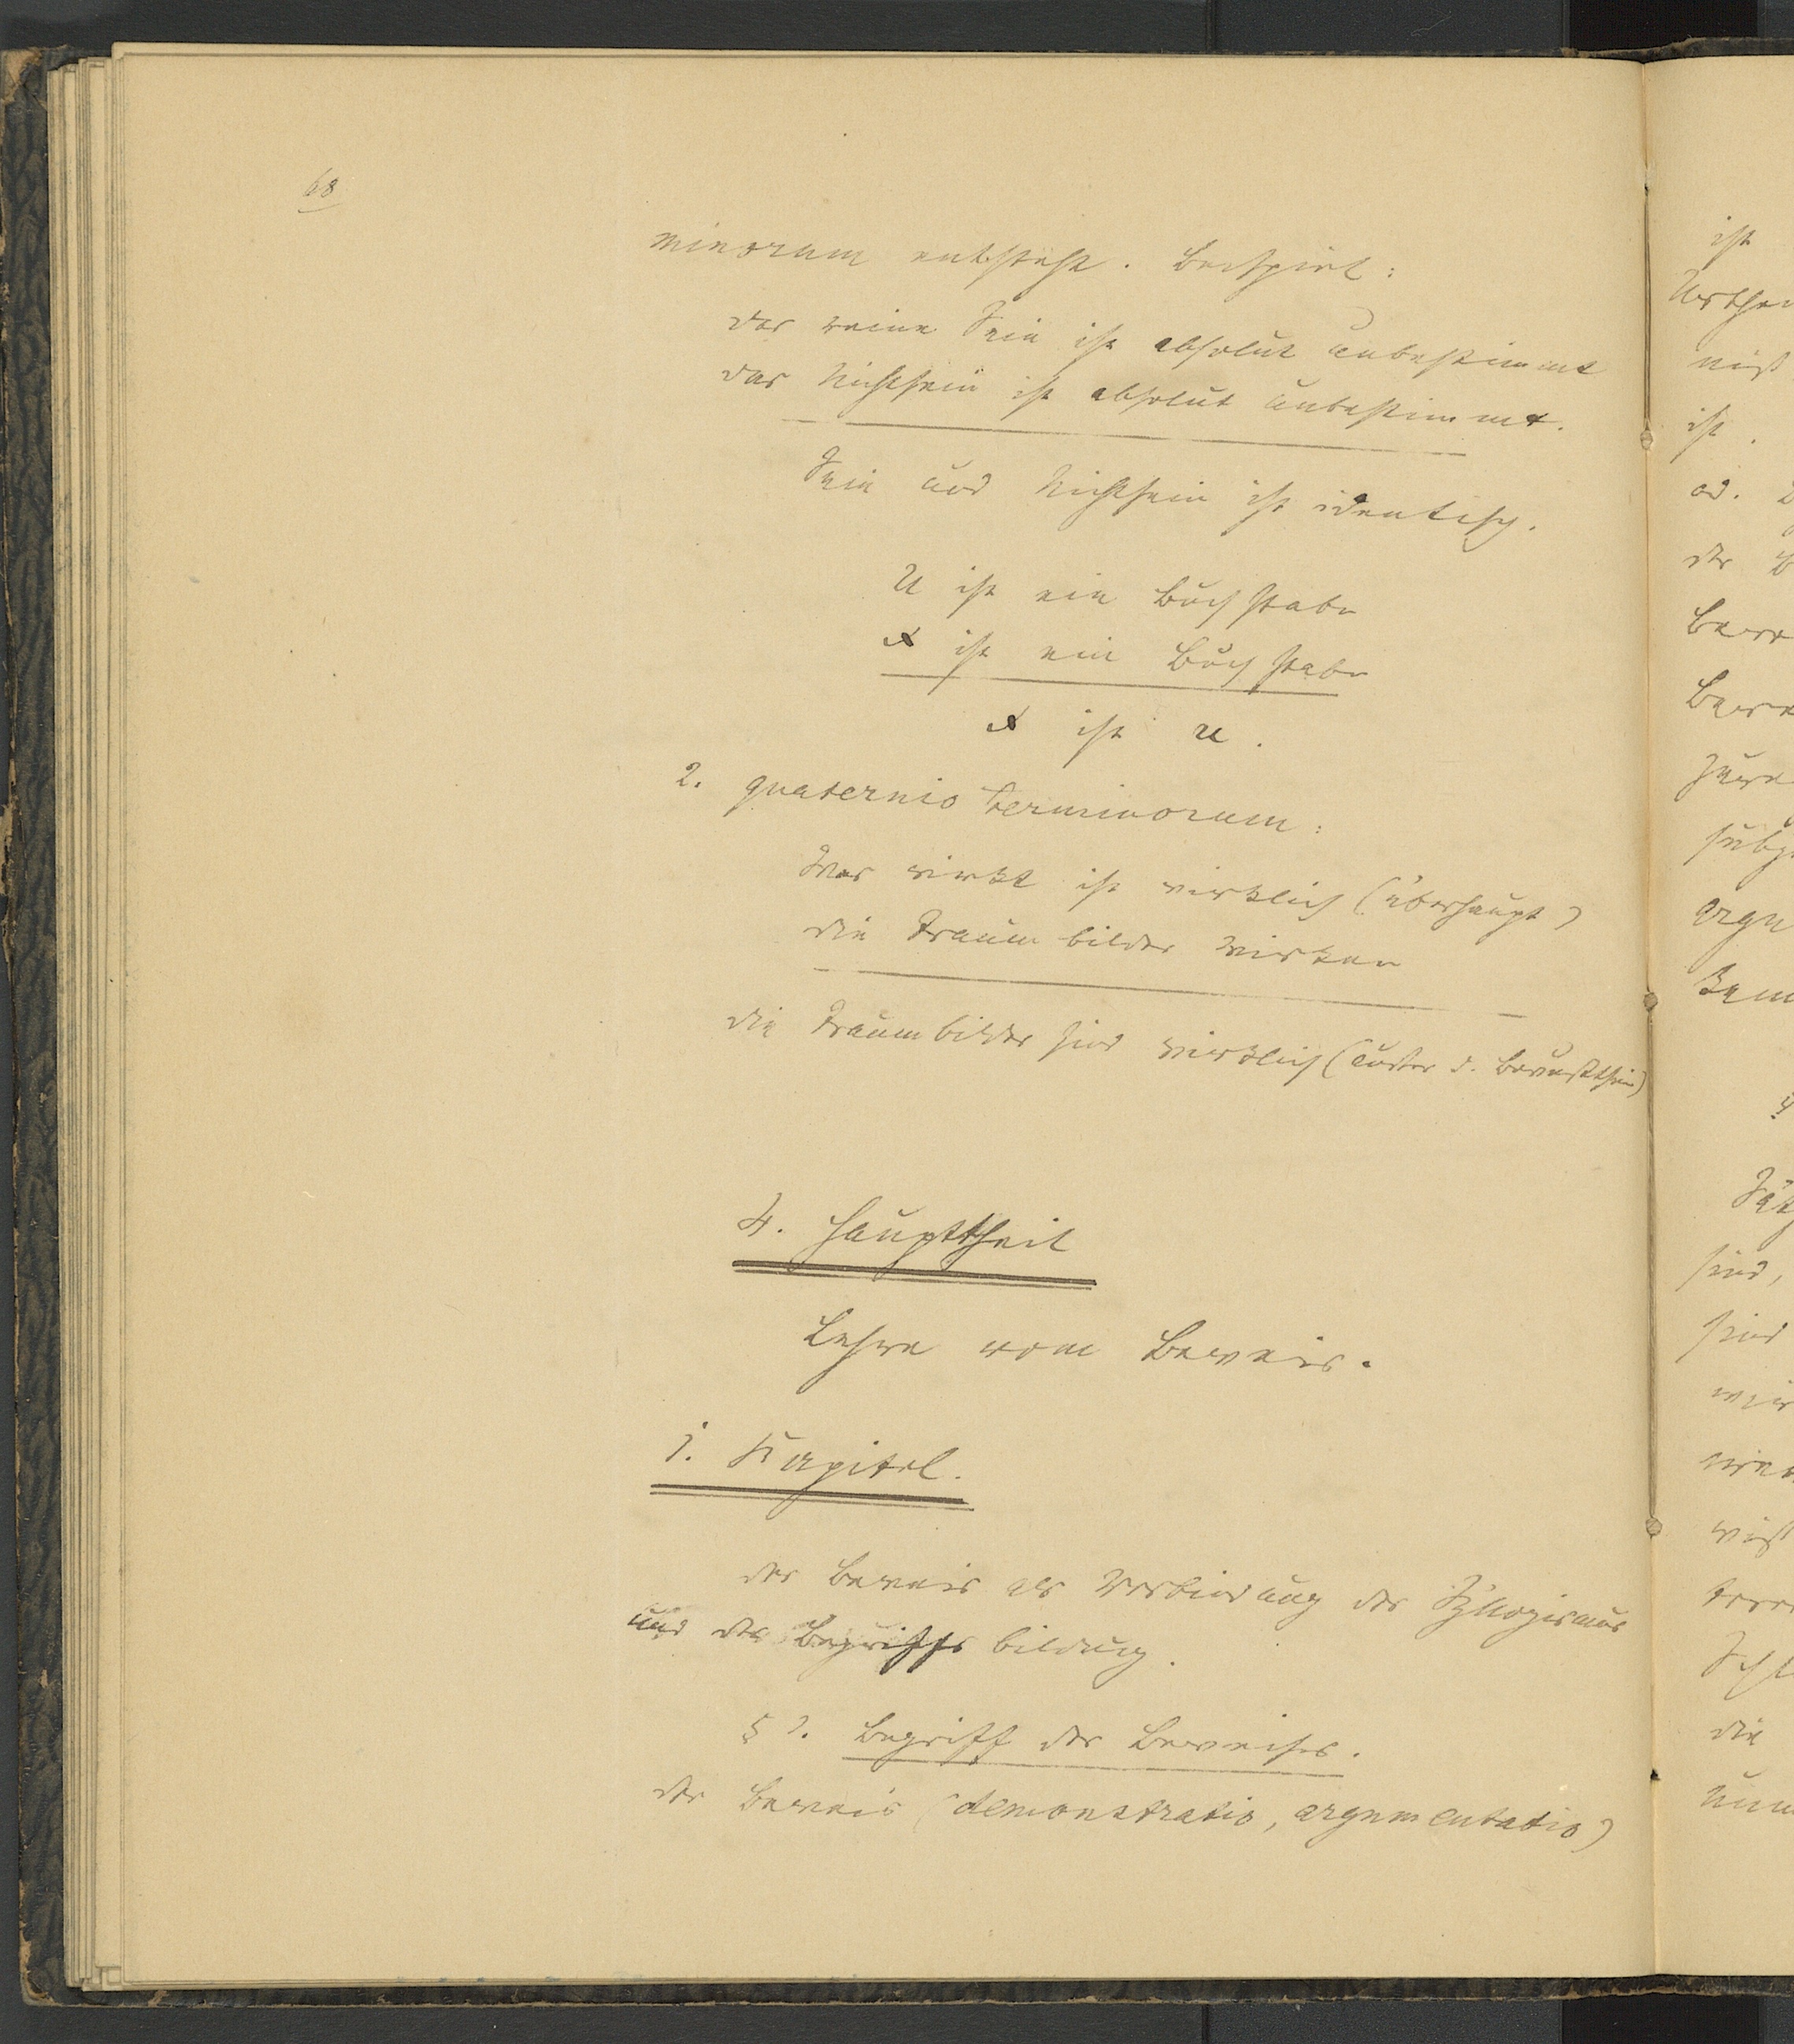 68
minorum entsteht. Beispiel:
das reine Sein ist absolut unbestimmt
das Nichtsein ist absolut unbestimmt.
Sein und Nichtsein ist identisch.
U ist ein Buchstabe
X ist ein Buchstabe
X ist U.
2. quaternio terminorum:
Was wirkt ist wirklich (überhaupt)
die Traumbilder wirken
die Traumbilder sind wirklich (außer d. Bewußtsein)
4. Haupttheil
Lehre vom Beweis.
1. Kapitel.
der Beweis als Verbindung des Syllogismus
und der Begriffsbildung.
§ 1. Begriff des Beweises.
der Beweis (demonstratio, argumentatio)
ist
ist.
od.
der
sind,
sind
die